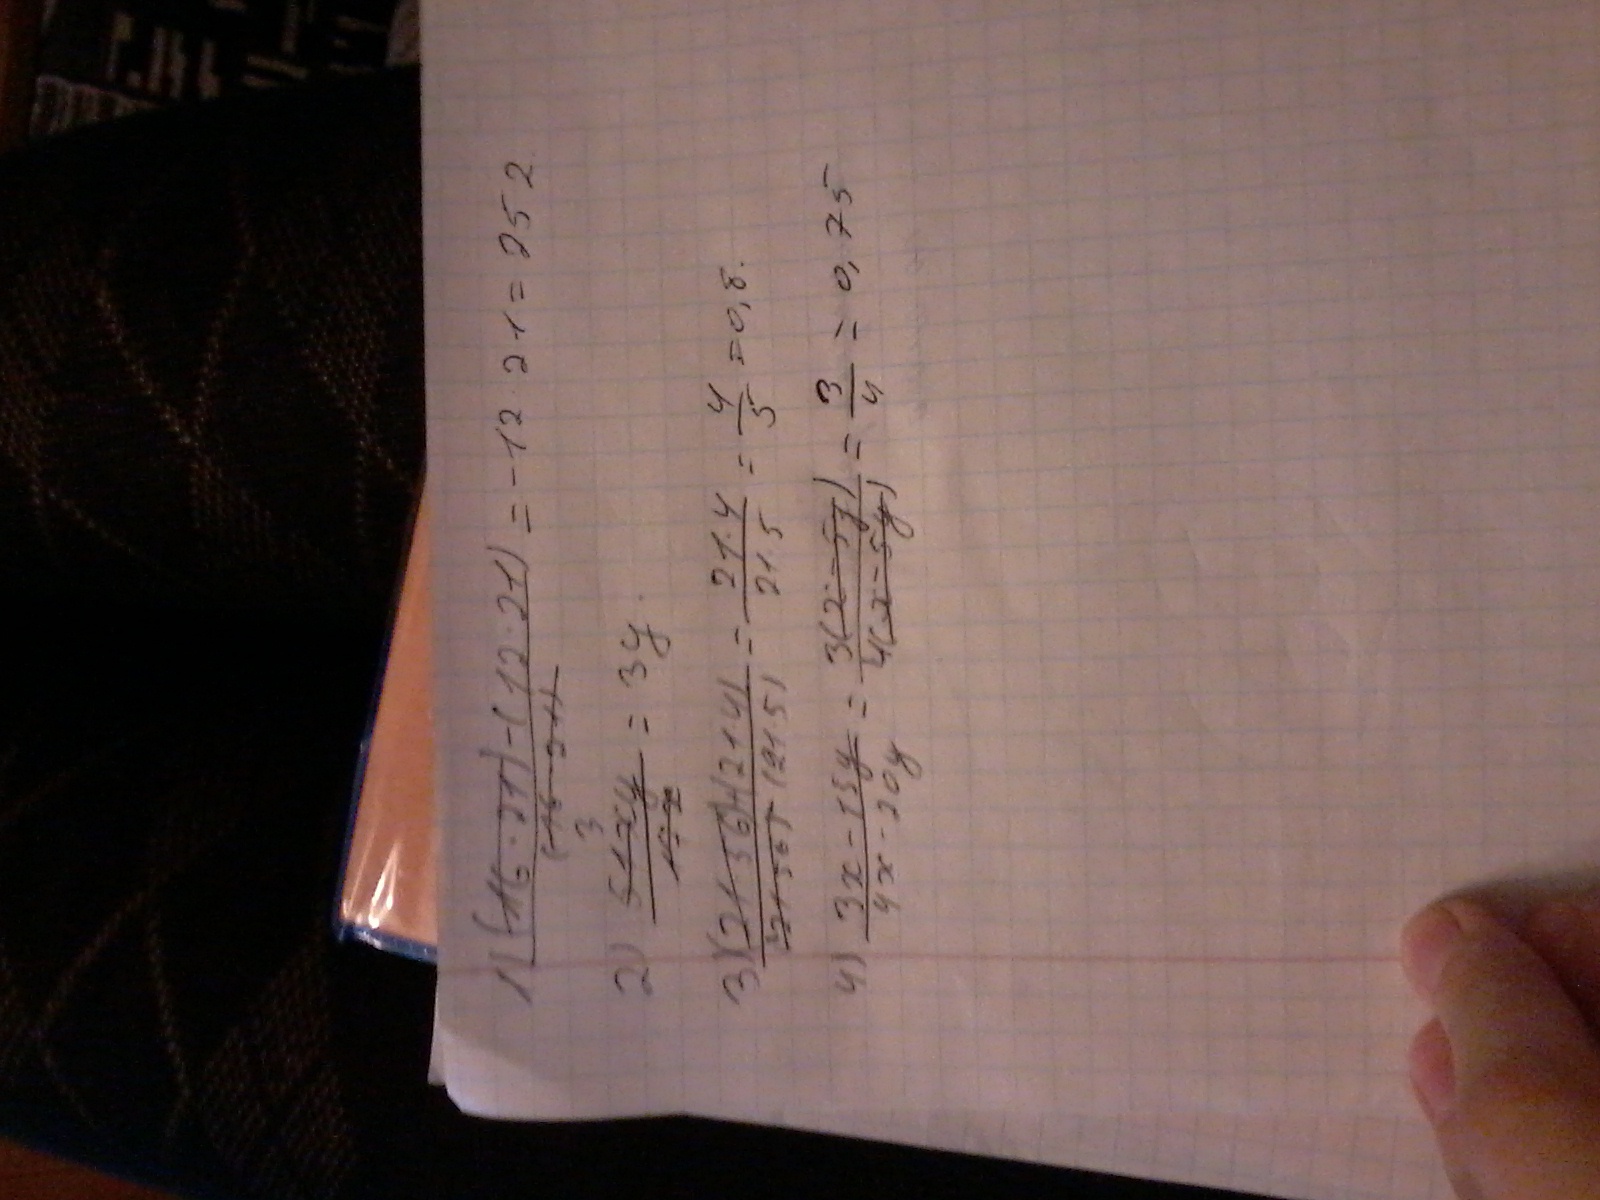 1) (16·21)-(12·21) / (16·21) = -12·21 = 252
2) 51xy / 17x = 3y.
3) (21·56)+(21·4) / (21·56)+(21·5) = 21·4 / 21·5 = 4/5 = 0,8.
4) 3x-15y / 4x-20y = 3(x-5y) / 4(x-5y) = 3/4 = 0,75